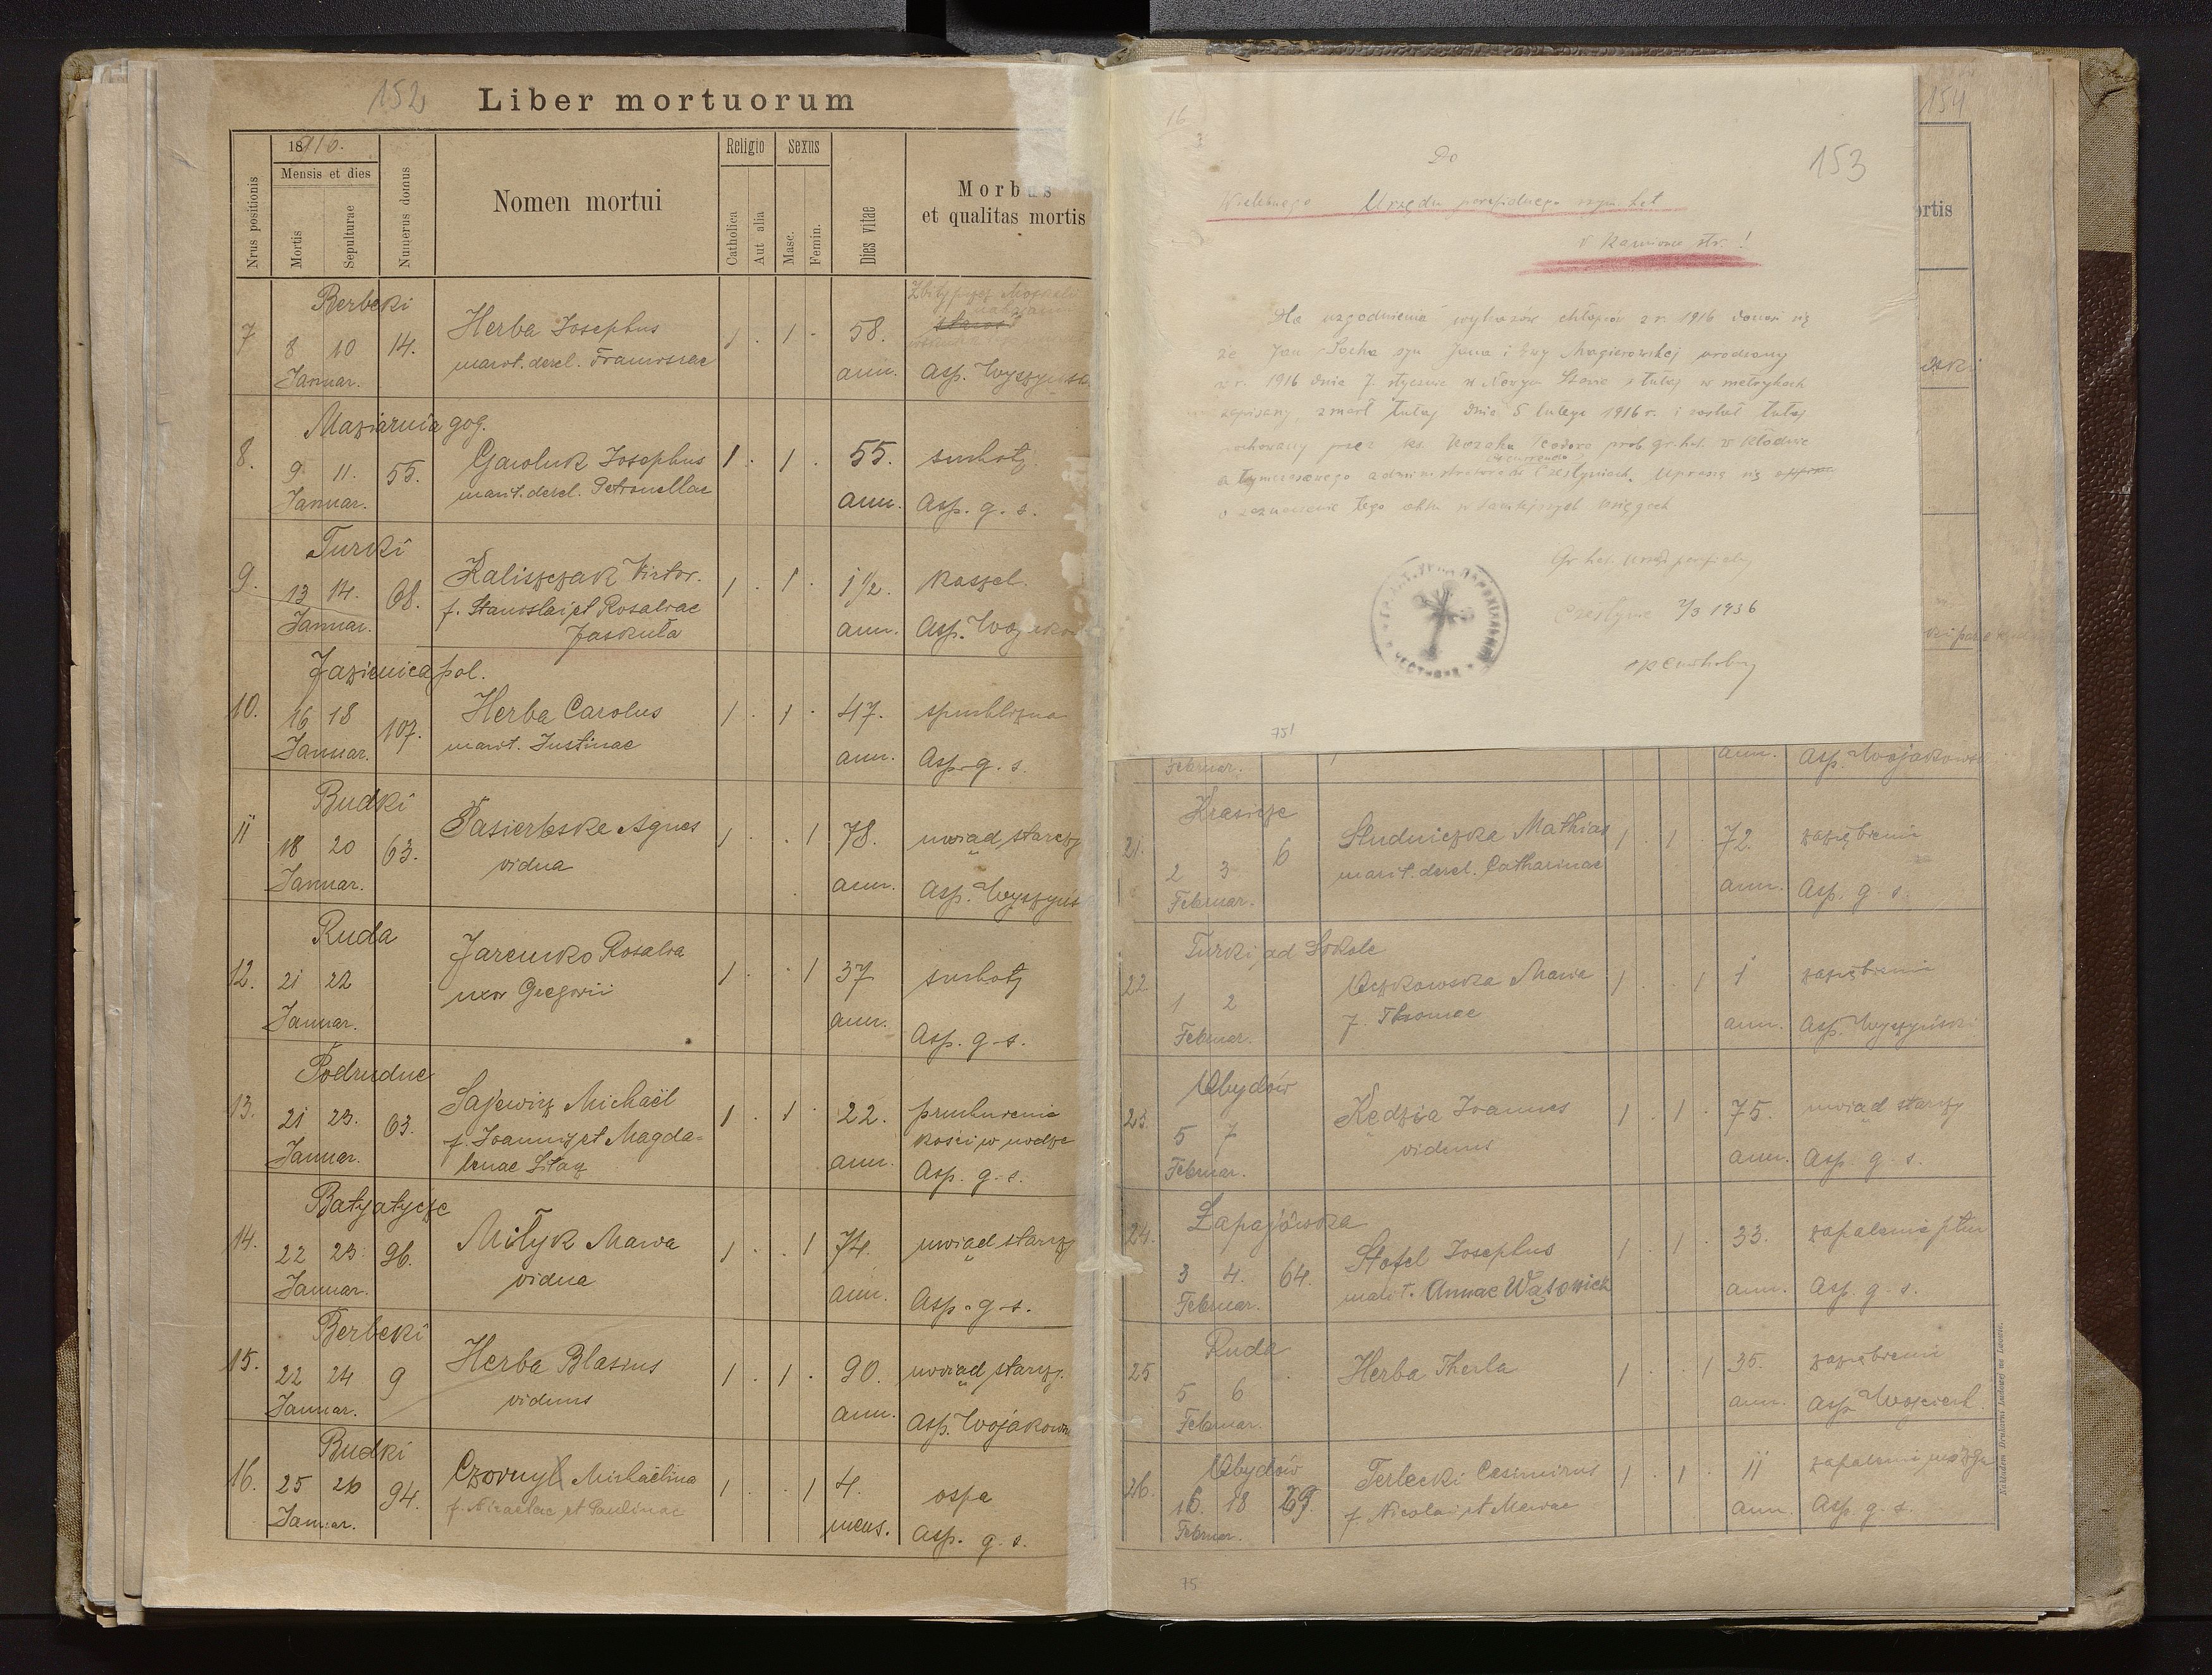 152
Liber mortuorum
Nrus positionis
1916.
Mensis et dies
Mortis
Sepulturae
Numerus domus
Nomen mortui
Religio
Catholica
Aut alia
Sexus
Masc.
Femin.
Dies vitae
Morbus
et qualitas mortis
Berbeki
7 8 10 14. Herba Josephus 1 . 1 . 58.
Januar. marit. derel. Franciscae ann. Asp.
Maziarnia gog.
8. 9 11. 55. Gawluk Josephus 1 . 1 . 55. suchoty
Januar. marit. derel. Petronellae ann. Asp. g. s.
Turki
9. 13 14. 68. Kaliszczak Victor. 1 . 1 . 1 1/2. kaszel.
Januar. f. Stanislai et Rosaliae ann. Asp.
Jaskuła
Jazienica pol.
10. 16 18 107. Herba Carolus 1 . 1 . 47.
Januar. marit. Justinae ann. Asp. g. s.
Budki
11 18 20 63. Pasierbska Agnes 1 . . 1 78. uwiąd starczy
Januar. vidua ann. Asp.
Ruda
12. 21 22 Jaremko Rosalia 1 . . 1 37 suchoty
Januar. uxor Gregorii ann. Asp. g. s.
Podrudne
13. 21 23. 63. Sajewicz Michaël 1 . 1 . 22. pruchnienie
kości w nodze
Januar. f. Joannis et Magda=
lenae ann. Asp. g. s.
Batyatycze
14. 22 23. 96. Miłyk Maria 1 . . 1 74. uwiąd starczy
Januar. vidua ann. Asp. g. s.
Berbeki
15. 22 24 9 Herba Blasius 1 . 1 . 90. uwiąd starczy.
Januar. viduus ann. Asp. Wojakow
Budki
16. 25 26 94. Czornyl Michaëlina 1 . . 1 4. ospa
Januar. et Paulinae mens. Asp. g. s.
16
Do
153
Wielebnego Urzędu parafialnego rzym. kat
w Kamionce str. !
Dla uzgodnienia wykazów chłopców z r. 1916 donosi się
że Jan Socha syn Jana i Ewy Magierowskiej urodzony
w r. 1916 dnia 7. stycznia w Nowym Stawie a tutaj w metrykach
zapisany, zmarł tutaj dnia 5 lutego 1916 r. i został tutaj
pochowany przez ks. Kozaka Teodora prob. gr. kat. w Kłodnie
a tymczasowego administratora w Czestyniach. Uprasza się
o zaznaczenie tego aktu w tamtejszych księgach
Gr. kat. urząd parafialny
Czestynie 2/3 1936
751
154
ortis
Februar. ann. Asp. Wojakowsk
Krasicze
21. 2 3 6 Studniczka Mathias 1 . 1 . 72. zaziębienie
Februar. marit. derel. Catharinae ann. Asp. g. s.
Turki ad Sokole
22 1 2 Maria 1 . . 1 1 zaziębienie
Februar. f. Thomae ann. Asp. Wyszyński
Obydów
23. 5 7 Kędzia Joannes 1 . 1 . 75. uwiąd starczy
Februar. viduus ann. Asp. g. s.
Łapajówka
24. 3 4. 64. Stofel Josephus 1 . 1 . 33. zapalenie płuc
Februar. marit. Annae Wąsowich ann. Asp. g. s.
Ruda
25 5 6 Herba Thecla 1 . . 1 35. zaziębienie
Februar. ann. Asp.
Obydów
26. 16 18 29. Terlecki Casimirus 1 . 1 . 11 zapalenie mózgu
Februar. f. Nicolai et Mariae ann. Asp. g. s.
Nakładem Drukarni Ludowej we Lwowie.
75